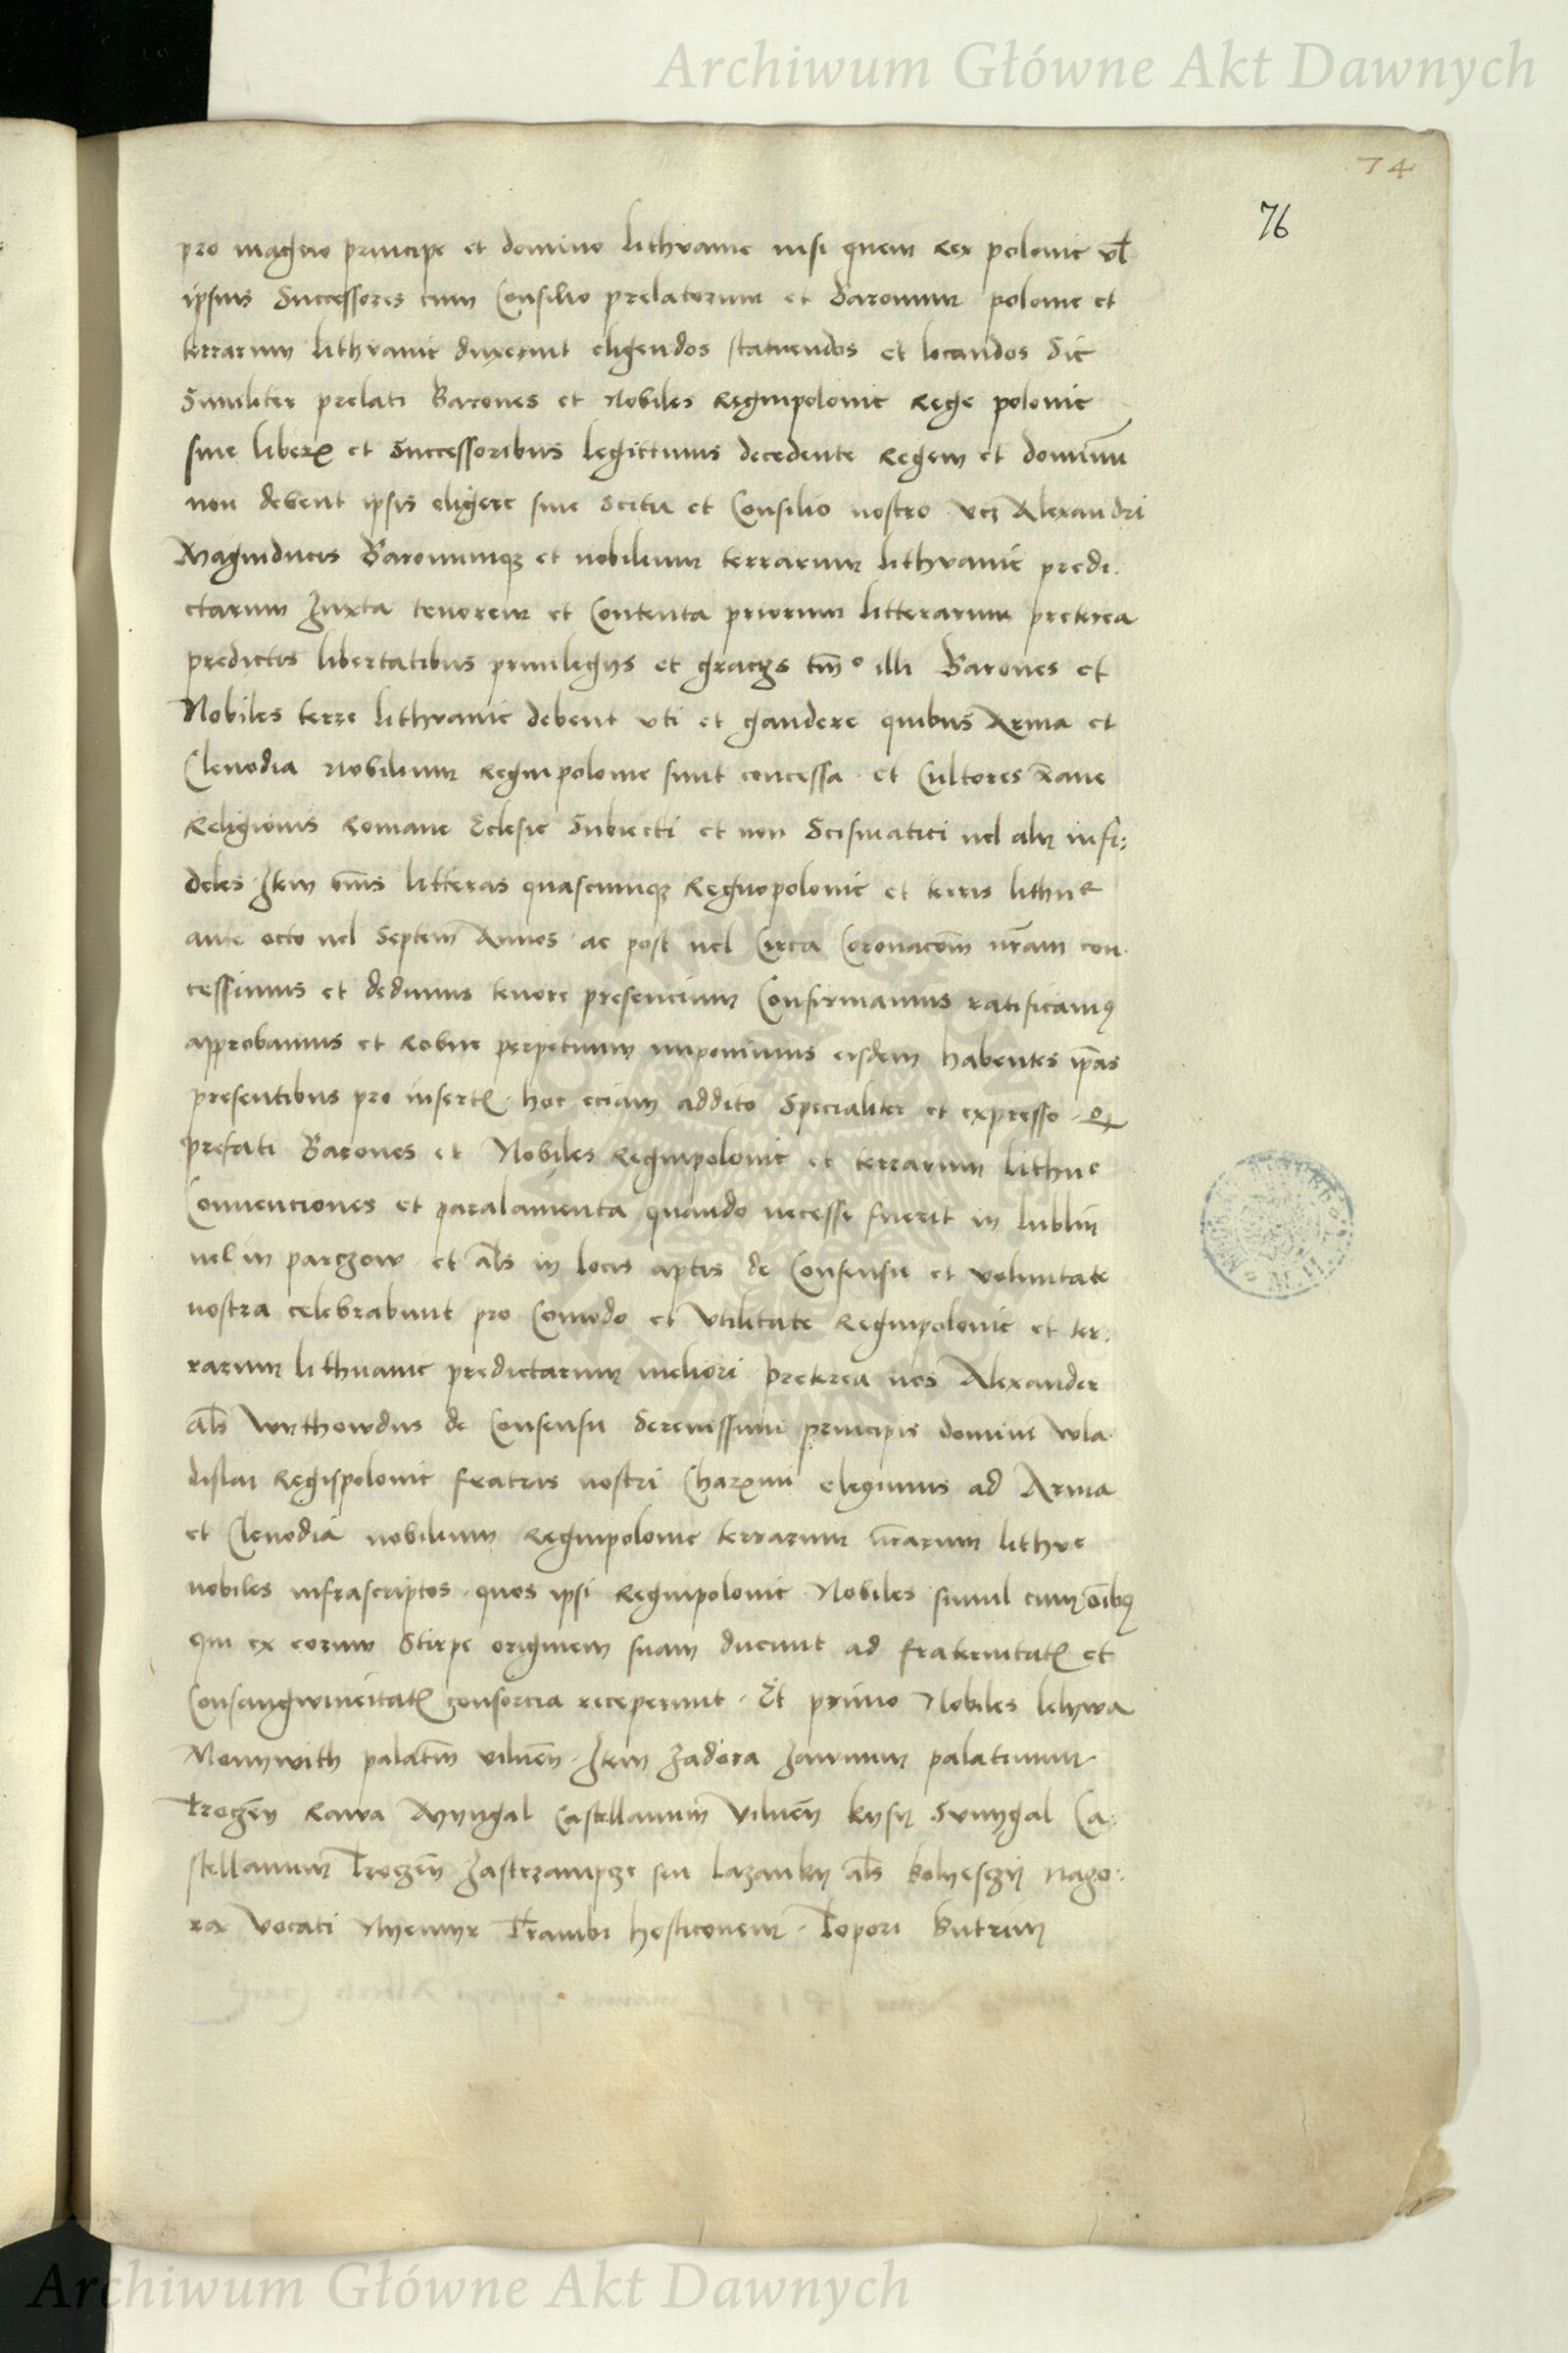 Archiwum Główne Akt Dawnych
74
76
pro magno principe et domino lithvanie nisi quem Rex polonie vl
ipsius Successores cum Consilio prelatorum et Baronum polonie et
terrarum lithvanie duxerint eligendos statuendos et locandos Sic
Similiter prelati Barones et Nobiles Regnipolonie Rege polonie
sine liberis et Successoribus legittimis decedente Regem et dominum
non debent ipsis eligere sine Scitu et Consilio nostro vcz Alexandri
Magniducis Baronumqz et nobilium terrarum lithvanie predi.
ctarum Juxta tenorem et Contenta priorum litterarum preterea
predictis libertatibus privilegijs et gracijs tmo illi Barones et
Nobiles terre lithvanie debent vti et gaudere quibus Arma et
Clenodia Nobilium Regnipolonie sunt concessa . et Cultores xane
Religionis Romane Eclesie Subiecti et non Scismatici uel alij infi:
deles . Item omnis litteras quascumqz Regnopolonie et terris lithue
ante octo uel Septem Annos . ac post uel Circa Coronacom nram con.
cessimus et dedimus tenore presencium Confirmamus ratificamus
approbamus et Robur perpetuum imponimus eisdem habentes ipas
presentibus pro insertis . hoc eciam addito Specialiter et expresso . q
prefati Barones et Nobiles Regnipolonie et terrarum lithue
Convenciones et paralamenta quando necesse fuerit in lublin
uel in parczow et als in locis aptis de Consensu et voluntate
nostra celebrabunt pro Comodo et Vtilitate Regnipolonie et ter:
rarum lithuanie predictarum meliori preterea nos Alexander
als Wythowdus de Consensu Serenissimi principis domini Wla.
dislai Regispolonie fratris nostri Charimi elegimus ad Arma
et Clenodia nobilium Regnipolonie terrarum nrarum lithve
nobiles infrascriptos . quos ipsi Regnipolonie Nobiles simul cum oibus
qui ex eorum Stirpe originem suam ducunt ad fraternitatis et
Consangwineitatis consorcia receperunt . Et primo Nobiles lelywa
Monywith palatm vilnen . Item Zadora Jawnum palatinum
Troczen Rawa Myngal Castellanum Vilnen lysy Sunygal Ca:
stellanum Troczen Jastrzampcze seu lazanky als kolyesczy nago:
ra vocati Nyemyr Trambi hosticonem . Topori Butrim
Archiwum Główne Akt Dawnych